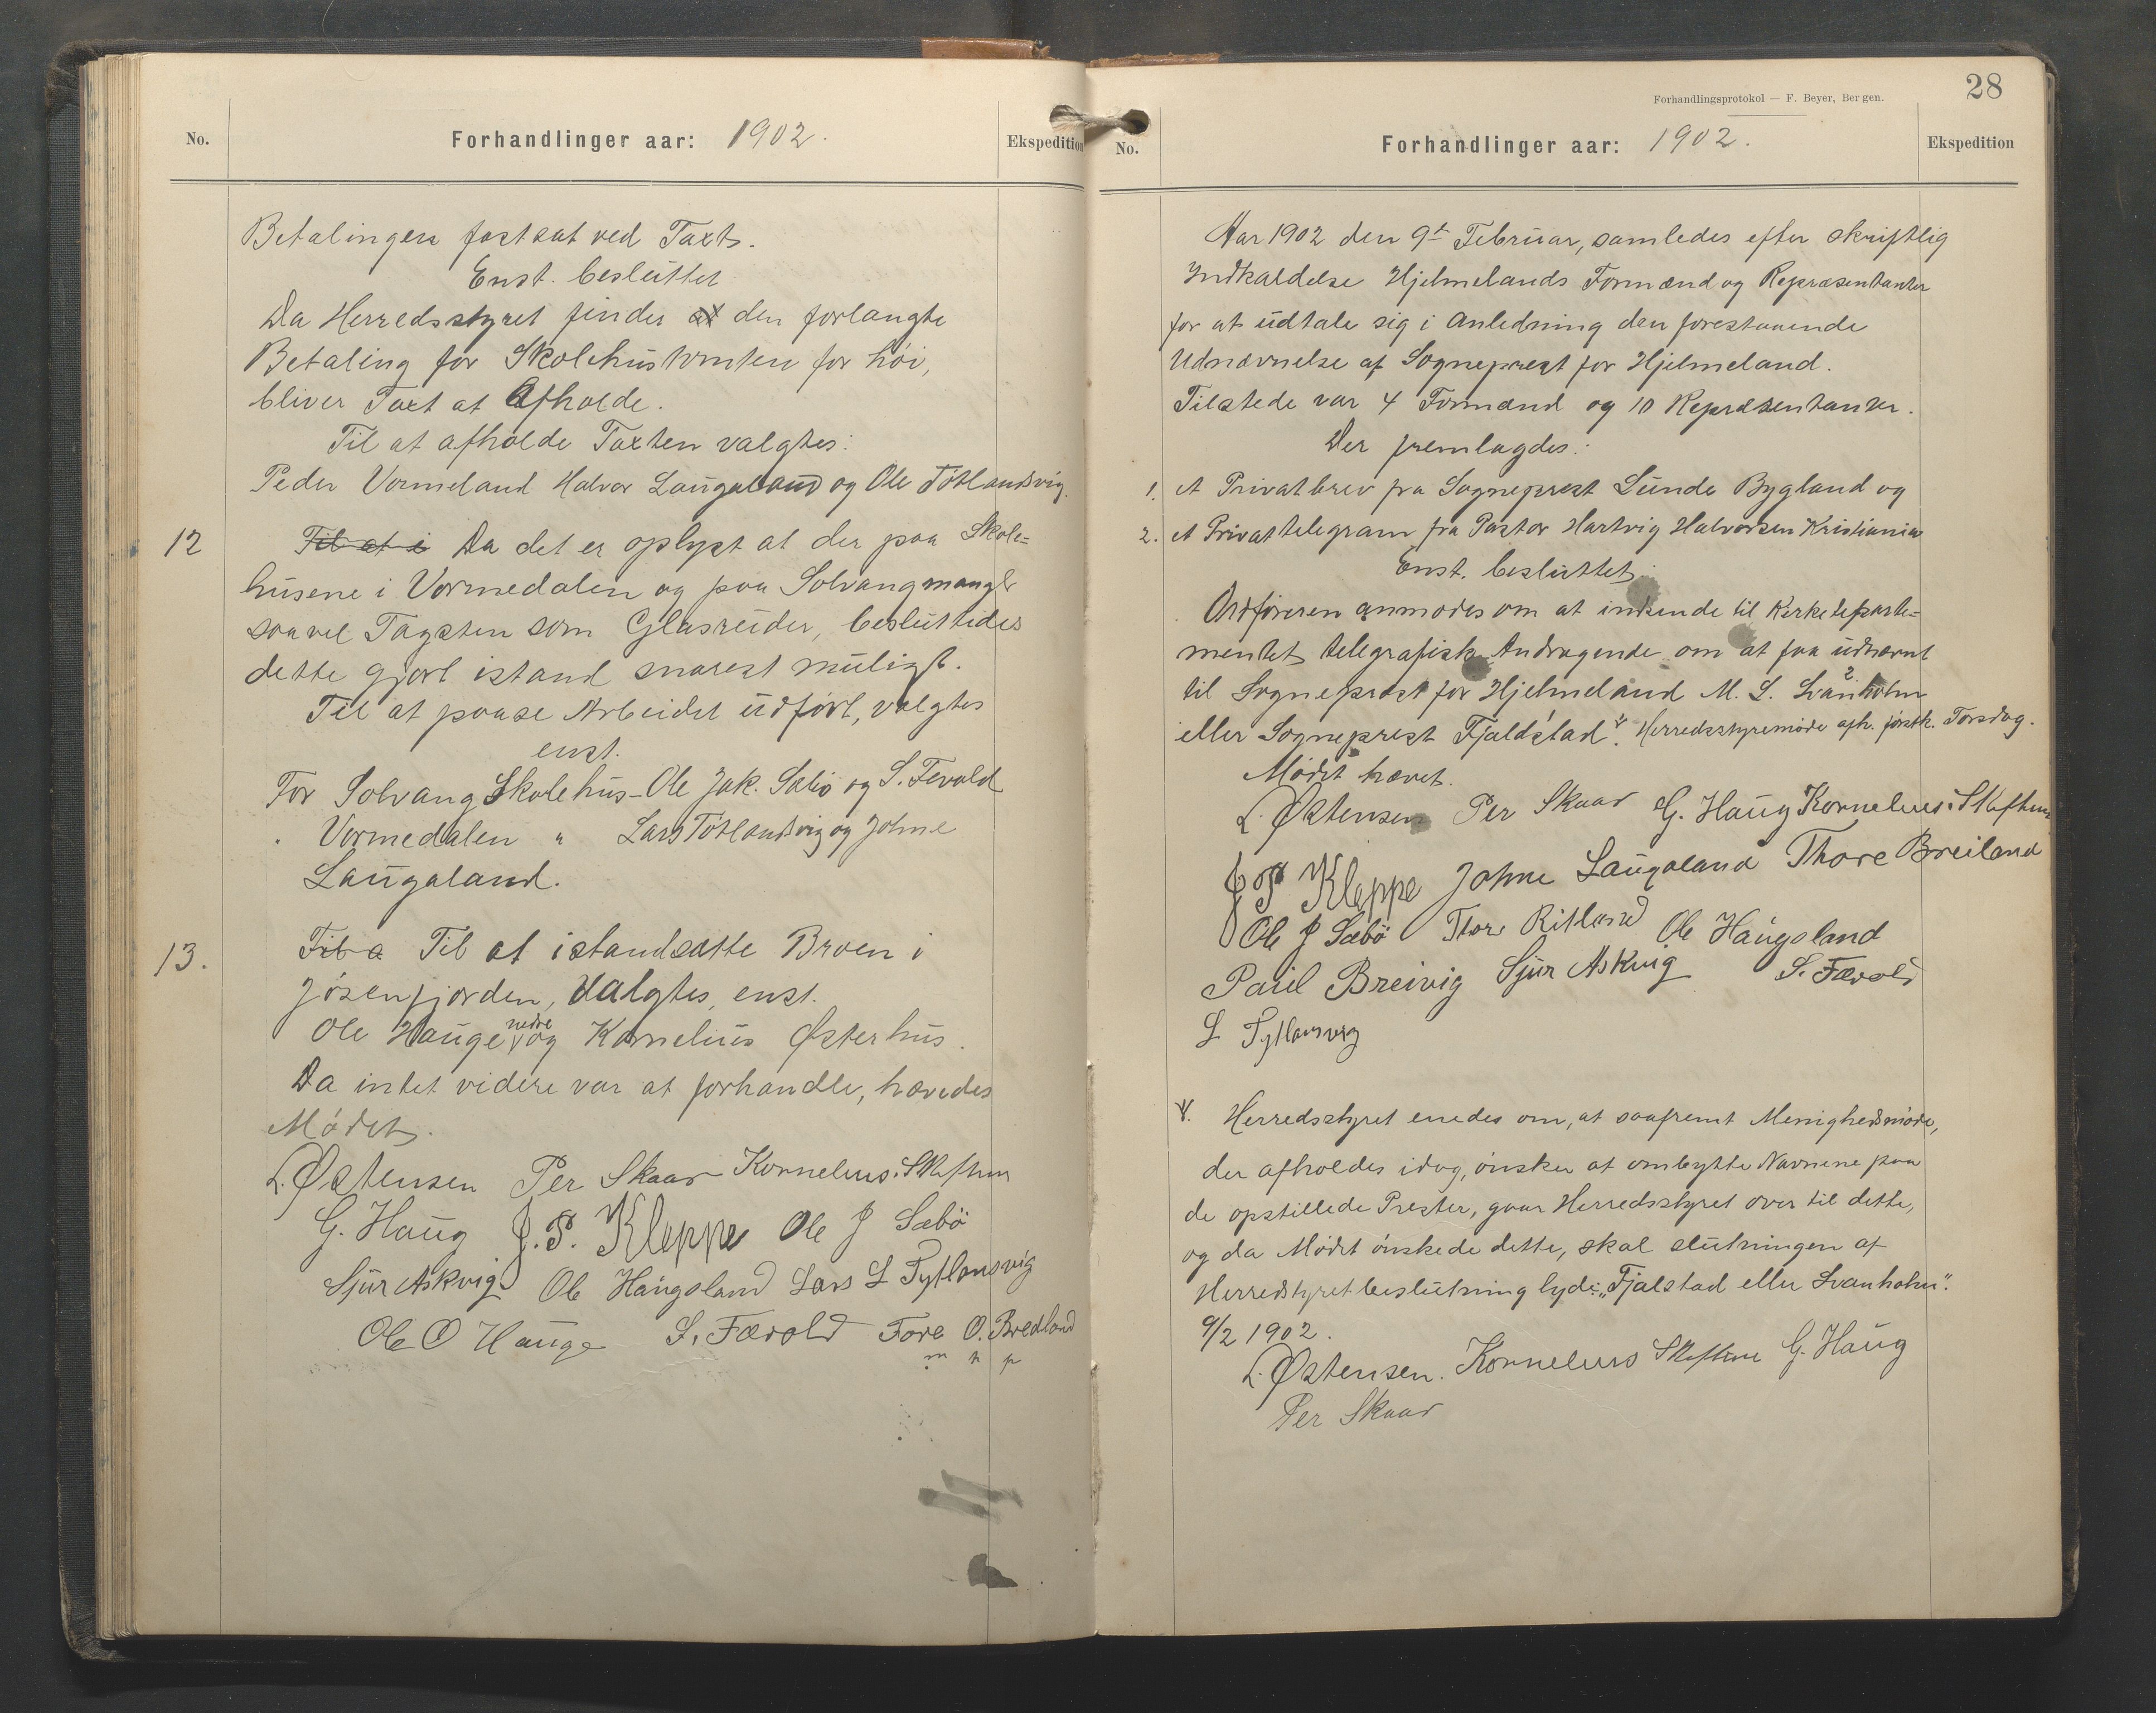 No.
Forhandlinger aar: 1902.
Ekspedition
Betalingen fastsat ved Taxt.
Enst. besluttet
Da Herredsstyret finder at den forlangte
Betaling for Skolehustomten for höi,
bliver Taxt at Afholde.
Til at afholde Taxten valgtes:
Peder Vormeland Halvor Laugaland og Ole Tötlandsvig.
12
Til at i Da det er oplyst at der paa Skole=
husene i Vormedalen og paa Solvang mangler
saavel Tagsten som Glasruder, besluttedes
dette gjort istand snarest muligt.
Til at paase Arbeidet udført, valgtes
enst.
For Solvang Skolehus - Ole Jak. Sæbö og S. Fevold
" Vormedalen " Lars Tötlandsvig og Johne
Laugaland.
13.
Til a Til at istandsætte Broen i
Jösenfjorden, Valgtes, enst.
Ole Hauge nedre og Kornelius Østerhus.
Da intet videre var at forhandle, hævedes
Mødet.
L. Østensen Per Skaar Kornelius. Skeftun
G. Haug J. P. Kleppe Ole J Sæbö
Sjur Askvig Ole Haugsland Lars L Tytlansvig
Ole O Hauge S. Fævold Tore O. Bredland
m p p
Forhandlingsprotokol — F. Beyer, Bergen.
28
No.
Forhandlinger aar: 1902.
Ekspedition
Aar 1902 den 9de Februar, samledes efter skriftlig
Indkaldelse Hjelmelands Formænd og Repræsentanter
for at udtale sig i Anledning den forestaaende
Udnævnelse af Sogneprest for Hjelmeland.
Tilstede var 4 Formænd og 10 Repræsentanter.
Der fremlagdes:
1. et Privatbrev fra Sogneprest Lunde Bygland og
2. et Privattelegram fra Pastor Hartvig Halvorsen Kristiania
Enst. besluttet:
Ordføreren anmodes om at indsende til Kirkedeparte=
mentet telegrafisk Andragende om at faa udnævnt
til Sogneprest for Hjelmeland M. S. Svanholm
eller Sogneprest Fjaldstad. Herredsstyremøde afh. førstk. Torsdag.
Mødet hævet.
L. Østensen Per Skaar G. Haug Kornelius. Skeftun
J P Kleppe Johne Laugaland Thore Breiland
Ole J Sæbö Thore Ritland Ole Haugsland
Paul Breivig Sjur Askvig S. Fævold
L Tytlansvig
Herredsstyret enedes om, at saafremt Menighedsmøde,
der afholdes idag, ønsker at ombytte Navnene paa
de opstillede Prester, gaar Herredsstyret over til dette,
og da Mødet ønskede dette, skal slutningen af
Herredstyretbeslutning lyde: "Fjalstad eller Svanholm".
9/2 1902.
L. Østensen. Kornelius Skeftun G. Haug
Per Skaar